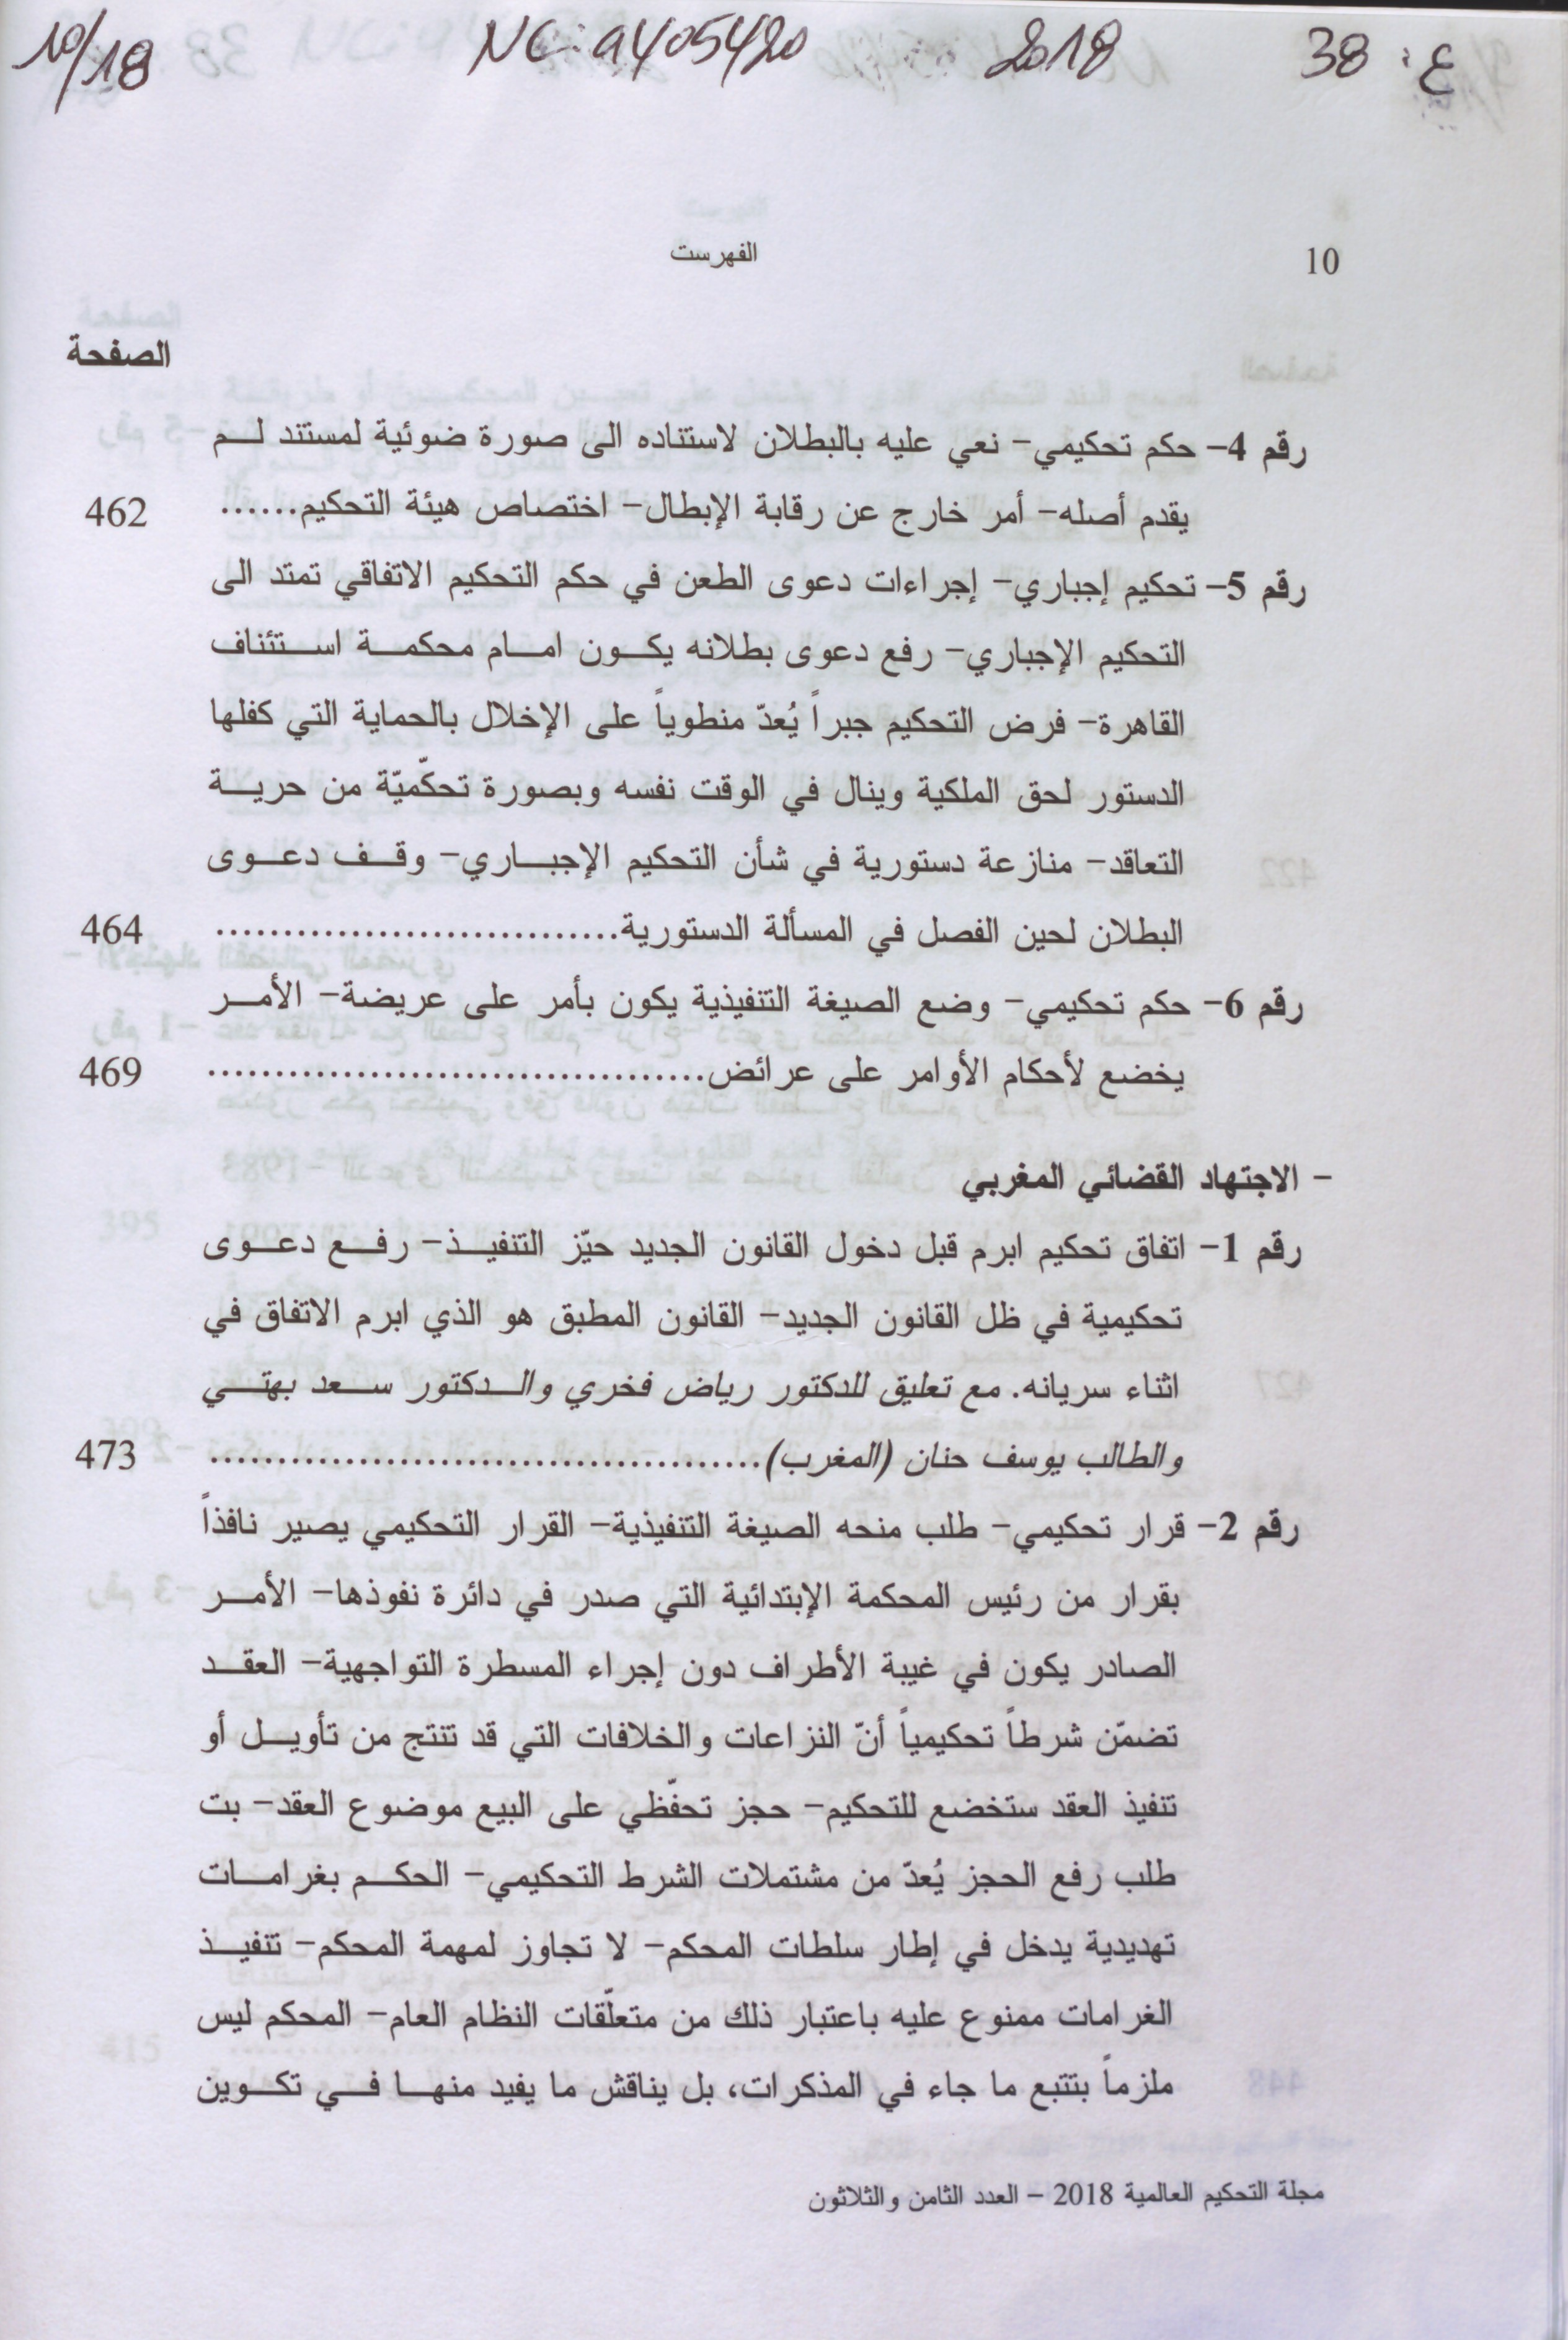 ع: 38 2018 NC: a405420 10/18
10 الفهرست
الصفحة
رقم 4- حكم تحكيمي- نعي عليه بالبطلان لاستناده الى صورة ضوئية لمستند لم
يقدم أصله- أمر خارج عن رقابة الإبطال- اختصاص هيئة التحكيم...... 462
رقم 5- تحكيم إجباري- إجراءات دعوى الطعن في حكم التحكيم الاتفاقي تمتد الى
التحكيم الإجباري- رفع دعوى بطلانه يكون امام محكمة استئناف
القاهرة- فرض التحكيم جبراً يُعدّ منطوياً على الإخلال بالحماية التي كفلها
الدستور لحق الملكية وينال في الوقت نفسه وبصورة تحكّميّة من حرية
التعاقد- منازعة دستورية في شأن التحكيم الإجباري- وقف دعوى
البطلان لحين الفصل في المسألة الدستورية.............................. 464
رقم 6- حكم تحكيمي- وضع الصيغة التنفيذية يكون بأمر على عريضة- الأمر
يخضع لأحكام الأوامر على عرائض..................................... 469
- الاجتهاد القضائي المغربي
رقم 1- اتفاق تحكيم ابرم قبل دخول القانون الجديد حيّز التنفيذ- رفع دعوى
تحكيمية في ظل القانون الجديد- القانون المطبق هو الذي ابرم الاتفاق في
اثناء سريانه. مع تعليق للدكتور رياض فخري والدكتور سعد بهتي
والطالب يوسف حنان (المغرب)......................................... 473
رقم 2- قرار تحكيمي- طلب منحه الصيغة التنفيذية- القرار التحكيمي يصير نافذاً
بقرار من رئيس المحكمة الإبتدائية التي صدر في دائرة نفوذها- الأمر
الصادر يكون في غيبة الأطراف دون إجراء المسطرة التواجهية- العقد
تضمّن شرطاً تحكيمياً أنّ النزاعات والخلافات التي قد تنتج من تأويل أو
تنفيذ العقد ستخضع للتحكيم- حجز تحفّظي على البيع موضوع العقد- بت
طلب رفع الحجز يُعدّ من مشتملات الشرط التحكيمي- الحكم بغرامات
تهديدية يدخل في إطار سلطات المحكم- لا تجاوز لمهمة المحكم- تنفيذ
الغرامات ممنوع عليه باعتبار ذلك من متعلّقات النظام العام- المحكم ليس
ملزماً بتتبع ما جاء في المذكرات، بل يناقش ما يفيد منها في تكوين
مجلة التحكيم العالمية 2018 – العدد الثامن والثلاثون